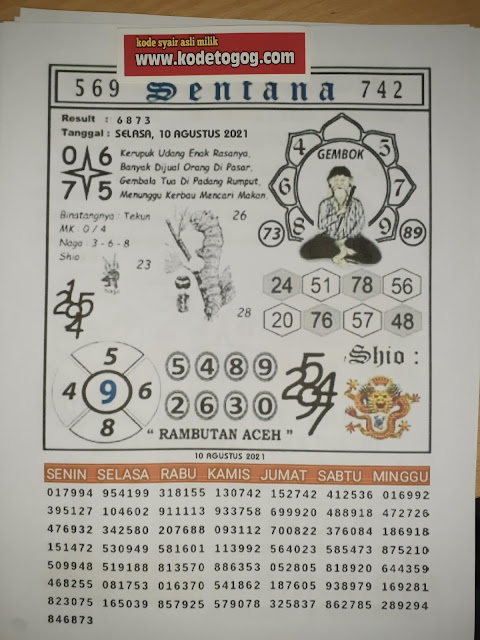 kode syair asli milik
www.kodetogog.com
569 Sentana 742
Result : 6873
Tanggal : SELASA, 10 AGUSTUS 2021
0 6
7 5
Kerupuk Udang Enak Rasanya,
Banyak Dijual Orang Di Pasar,
Gembala Tua Di Padang Rumput,
Menunggu Kerbau Mencari Makan.
GEMBOK
4 5
6 7
8 9
73 89
Binatangnya : Tekun
MK : 0 / 4
Naga : 3 - 6 - 8
Shio :
26
23
28
24 51 78 56
20 76 57 48
5
4 9 6
8
5 4 8 9
2 6 3 0
" RAMBUTAN ACEH "
Shio :
10 AGUSTUS 2021
SENIN SELASA RABU KAMIS JUMAT SABTU MINGGU
017994 954199 318155 130742 152742 412536 016992
395127 104602 911113 933758 699920 488918 472726
476932 342580 207688 093112 700822 376084 186918
151472 530949 581601 113992 564023 585473 875210
509948 519188 813570 886353 052805 818920 644359
468255 081753 016370 541862 187605 938979 169281
823075 165039 857925 579078 325837 862785 289294
846873